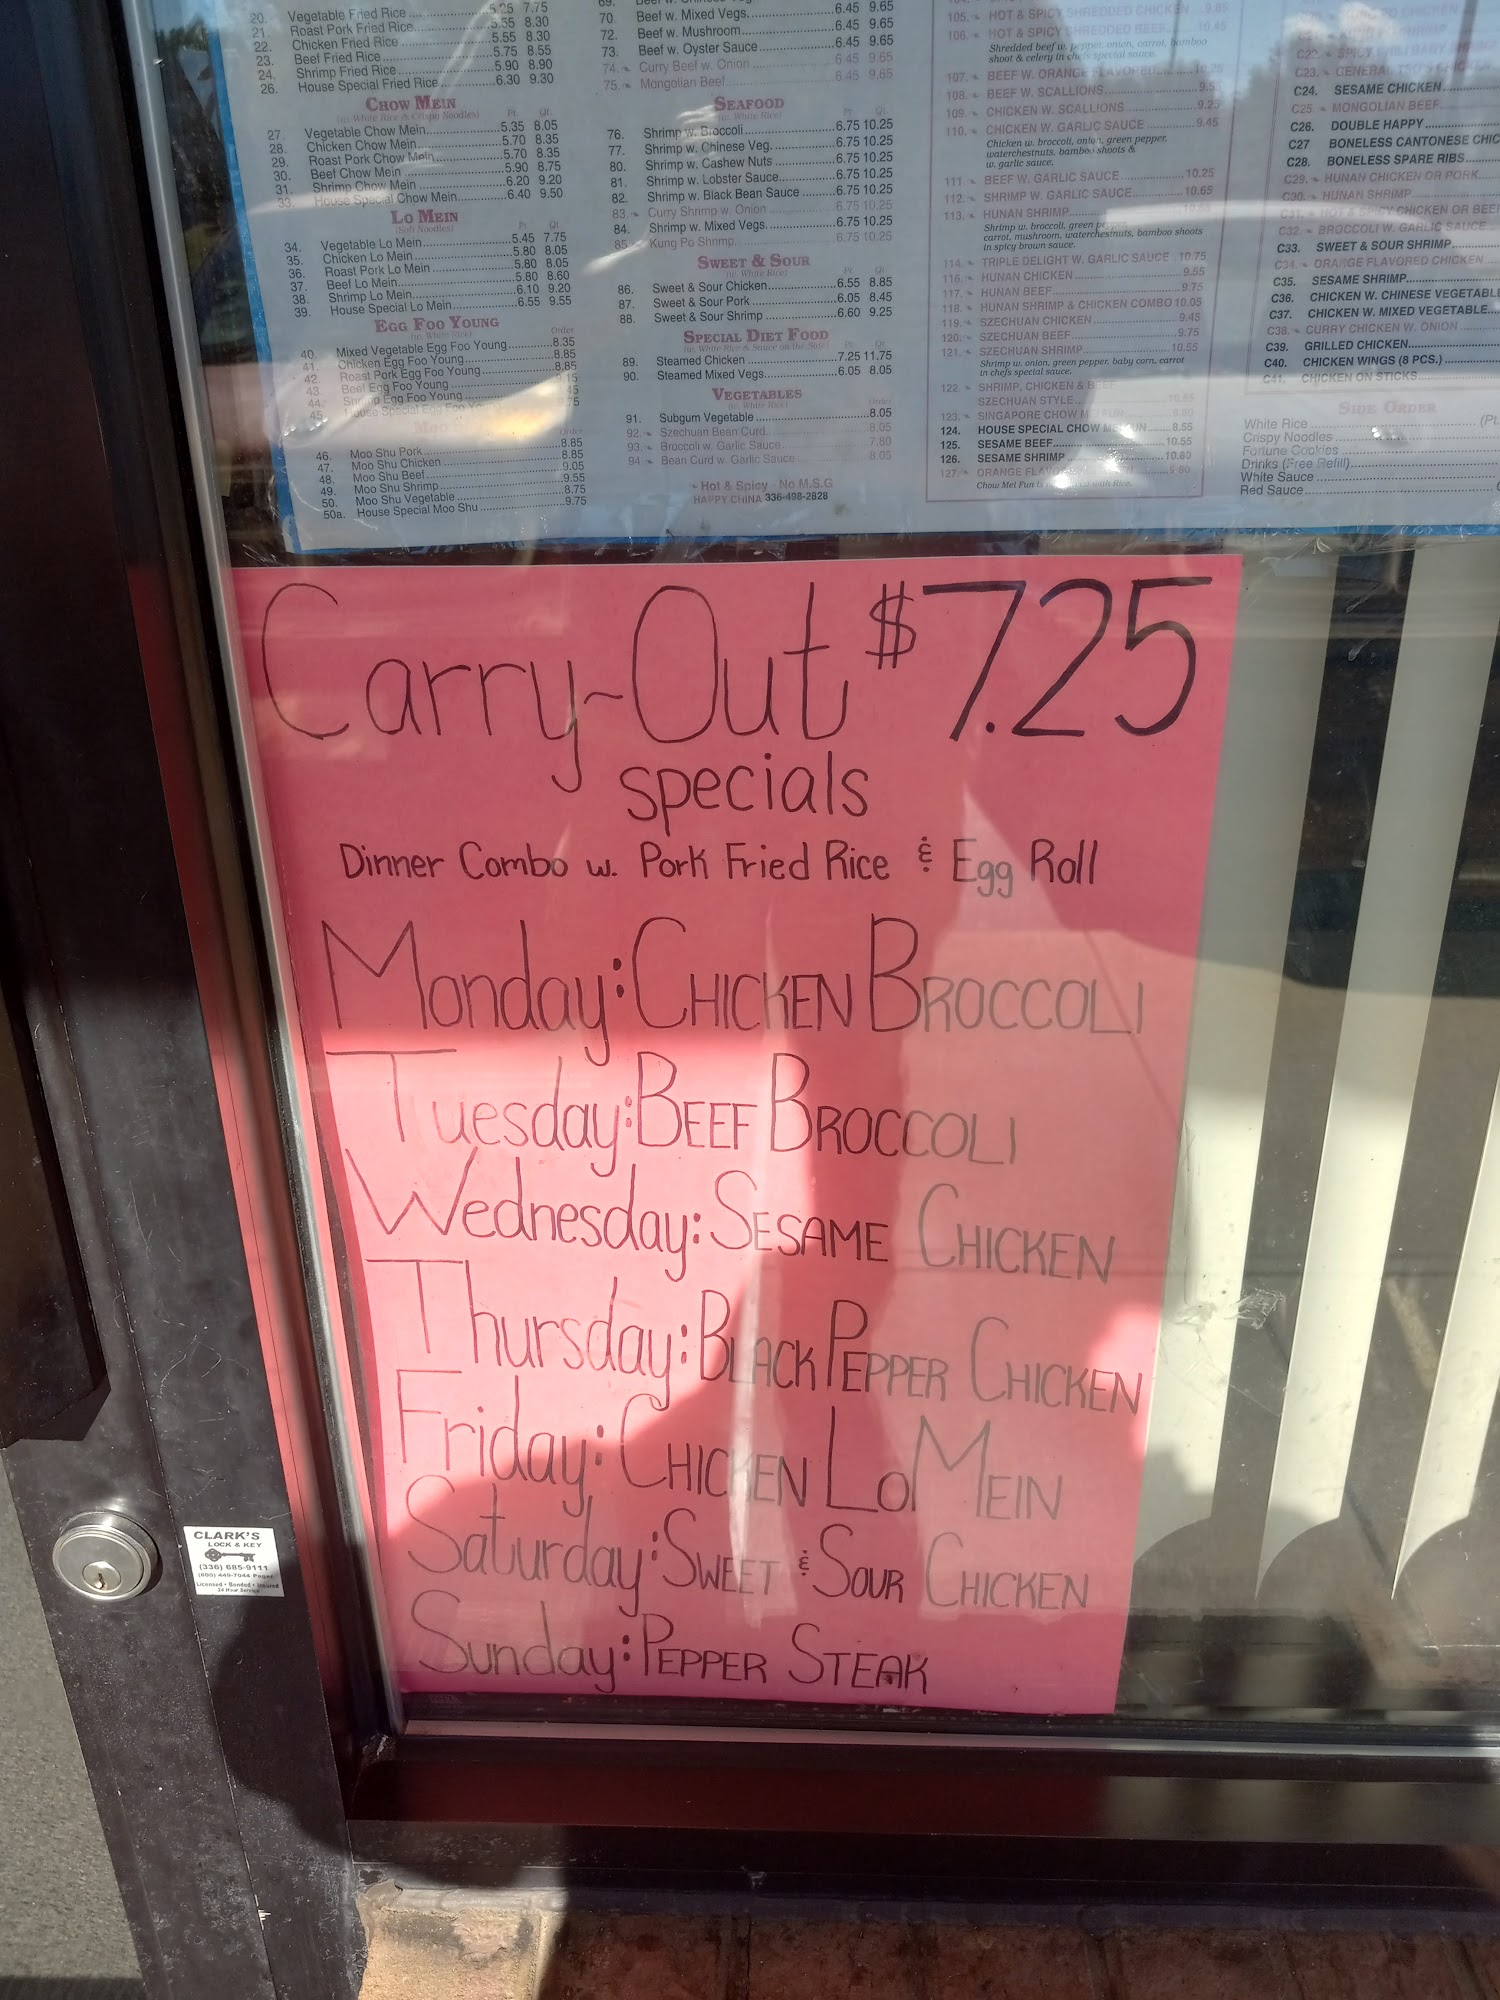 20. Vegetable Fried Rice 5.25 7.75
21. Roast Pork Fried Rice 5.55 8.30
22. Chicken Fried Rice 5.55 8.30
23. Beef Fried Rice 5.75 8.55
24. Shrimp Fried Rice 5.90 8.90
26. House Special Fried Rice 6.30 9.30
CHOW MEIN
(w. White Rice & Crispy Noodles) Pt. Qt.
27. Vegetable Chow Mein 5.35 8.05
28. Chicken Chow Mein 5.70 8.35
29. Roast Pork Chow Mein 5.70 8.35
30. Beef Chow Mein 5.90 8.75
31. Shrimp Chow Mein 6.20 9.20
33. House Special Chow Mein 6.40 9.50
LO MEIN
(Soft Noodles) Pt. Qt.
34. Vegetable Lo Mein 5.45 7.75
35. Chicken Lo Mein 5.80 8.05
36. Roast Pork Lo Mein 5.80 8.05
37. Beef Lo Mein 5.80 8.60
38. Shrimp Lo Mein 6.10 9.20
39. House Special Lo Mein 6.55 9.55
EGG FOO YOUNG
(w. White Rice) Order
40. Mixed Vegetable Egg Foo Young 8.35
41. Chicken Egg Foo Young 8.85
42. Roast Pork Egg Foo Young 8.85
43. Beef Egg Foo Young
44. Shrimp Egg Foo Young
45. House Special Egg Foo
Order
46. Moo Shu Pork 8.85
47. Moo Shu Chicken 8.85
48. Moo Shu Beef 9.05
49. Moo Shu Shrimp 9.55
50. Moo Shu Vegetable 8.75
50a. House Special Moo Shu 9.75
70. Beef w. Mixed Vegs. 6.45 9.65
72. Beef w. Mushroom 6.45 9.65
73. Beef w. Oyster Sauce 6.45 9.65
74. Curry Beef w. Onion 6.45 9.65
75. Mongolian Beef 6.45 9.65
SEAFOOD
(w. White Rice) Pt. Qt.
76. Shrimp w. Broccoli 6.75 10.25
77. Shrimp w. Chinese Veg. 6.75 10.25
80. Shrimp w. Cashew Nuts 6.75 10.25
81. Shrimp w. Lobster Sauce 6.75 10.25
82. Shrimp w. Black Bean Sauce 6.75 10.25
83. Curry Shrimp w. Onion 6.75 10.25
84. Shrimp w. Mixed Vegs. 6.75 10.25
85. Kung Po Shrimp 6.75 10.25
SWEET & SOUR
(w. White Rice) Pt. Qt.
86. Sweet & Sour Chicken 6.55 8.85
87. Sweet & Sour Pork 6.05 8.45
88. Sweet & Sour Shrimp 6.60 9.25
SPECIAL DIET FOOD
(w. White Rice & Sauce on the Side) Pt. Qt.
89. Steamed Chicken 7.25 11.75
90. Steamed Mixed Vegs. 6.05 8.05
VEGETABLES
(w. White Rice) Order
91. Subgum Vegetable 8.05
92. Szechuan Bean Curd 8.05
93. Broccoli w. Garlic Sauce 7.80
94 Bean Curd w. Garlic Sauce 8.05
Hot & Spicy - No M.S.G
HAPPY CHINA 336-498-2828
105. HOT & SPICY SHREDDED CHICKEN 9.85
106. HOT & SPICY SHREDDED BEEF 10.45
Shredded beef w. pepper, onion, carrot, bamboo
shoot & celery in chefs special sauce.
107. BEEF W. ORANGE FLAVORED 10.25
108. BEEF W. SCALLIONS
109. CHICKEN W. SCALLIONS 9.25
110. CHICKEN W. GARLIC SAUCE 9.45
Chicken w. broccoli, onion, green pepper,
waterchestnuts, bamboo shoots &
w. garlic sauce.
111. BEEF W. GARLIC SAUCE 10.25
112. SHRIMP W. GARLIC SAUCE 10.65
113. HUNAN SHRIMP
Shrimp w. broccoli, green pepper,
carrot, mushroom, waterchestnuts, bamboo shoots
in spicy brown sauce.
114. TRIPLE DELIGHT W. GARLIC SAUCE 10.75
116. HUNAN CHICKEN 9.55
117. HUNAN BEEF 9.75
118. HUNAN SHRIMP & CHICKEN COMBO 10.05
119. SZECHUAN CHICKEN 9.45
120. SZECHUAN BEEF 9.75
121. SZECHUAN SHRIMP 10.55
Shrimp w. onion, green pepper, baby corn, carrot
in chefs special sauce.
122. SHRIMP, CHICKEN & BEEF
SZECHUAN STYLE
123. SINGAPORE CHOW MEI FUN
124. HOUSE SPECIAL CHOW MEI FUN 8.55
125. SESAME BEEF 10.55
126. SESAME SHRIMP 10.80
127. ORANGE
Chow Mei Fun is
C23. GENERAL TSO'S CHICKEN
C24. SESAME CHICKEN
C25 MONGOLIAN BEEF
C26. DOUBLE HAPPY
C27 BONELESS CANTONESE CHIC
C28. BONELESS SPARE RIBS
C29. HUNAN CHICKEN OR PORK
C30. HUNAN SHRIMP
C31. HOT & SPICY CHICKEN OR BEEF
C32. BROCCOLI W. GARLIC SAUCE
C33. SWEET & SOUR SHRIMP
C34. ORANGE FLAVORED CHICKEN
C35. SESAME SHRIMP
C36. CHICKEN W. CHINESE VEGETABLE
C37. CHICKEN W. MIXED VEGETABLE
C38. CURRY CHICKEN W. ONION
C39. GRILLED CHICKEN
C40. CHICKEN WINGS (8 PCS.)
C41. CHICKEN ON STICKS
SIDE ORDER
White Rice (Pt.
Crispy Noodles
Fortune Cookies
Drinks (Free Refill)
White Sauce
Red Sauce
Carry-Out $7.25
specials
Dinner Combo w. Pork Fried Rice & Egg Roll
Monday: CHICKEN BROCCOLI
Tuesday: BEEF BROCCOLI
Wednesday: SESAME CHICKEN
Thursday: BLACK PEPPER CHICKEN
Friday: CHICKEN LO MEIN
Saturday: SWEET & SOUR CHICKEN
Sunday: PEPPER STEAK
CLARK'S
LOCK & KEY
(336) 685-9111
(800) 449-7044 Pager
Licensed • Bonded • Insured
24 Hour Service